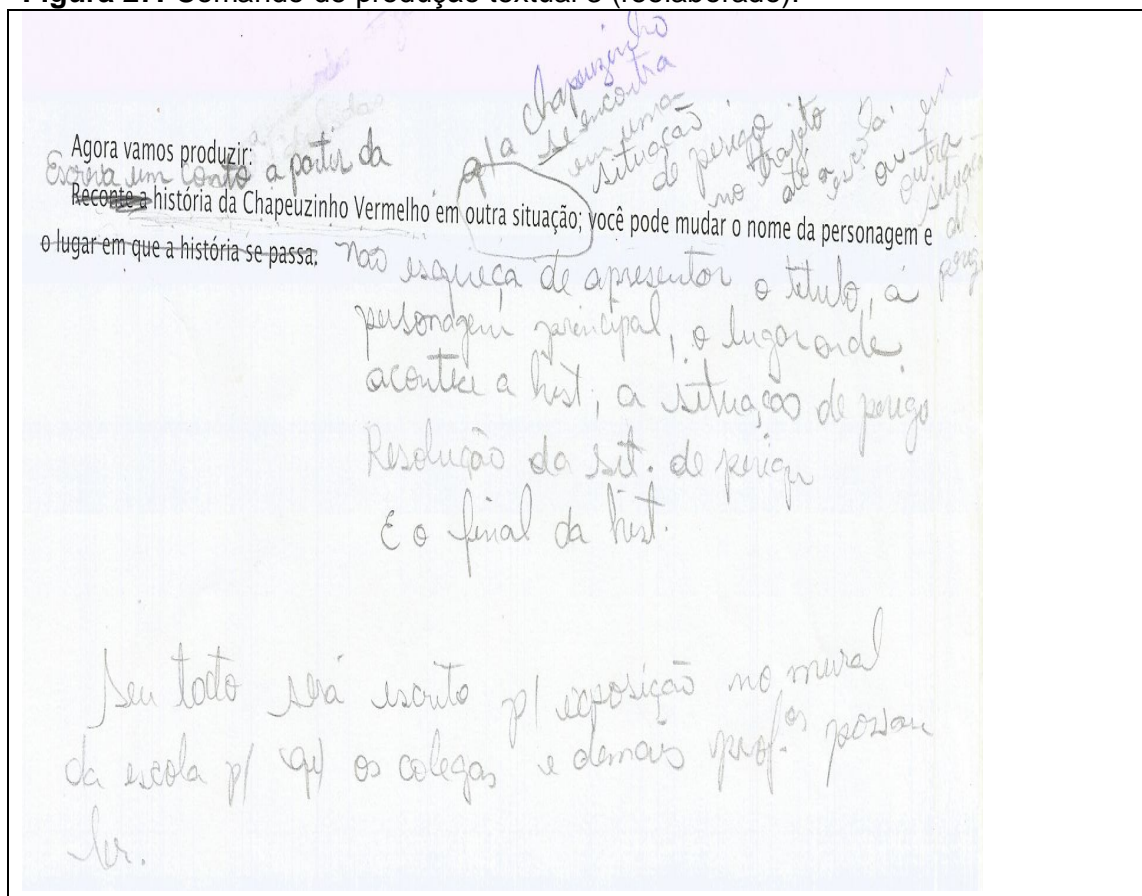 Agora vamos produzir:
Escreva um conto a partir da
Reconte a história da Chapeuzinho Vermelho em outra situação; você pode mudar o nome da personagem e
o lugar em que a história se passa.
a chapeuzinho
se encontra
em uma
situação
de perigo
no trajeto
até
outra
situação
de
perigo
Não esqueça de apresentar o título, a
personagem principal, o lugar onde
acontece a hist, a situação de perigo
Resolução da sit. de perigo
E o final da hist.
Seu texto será escrito p/ exposição no mural
da escola p/ q os colegas e demais prof.os possam
ler.